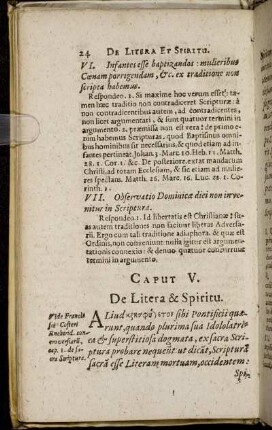 24 DE LITERA ET SPIRITU.
VI. Infantes esse baptizandos: mulieribus
Cœnam porrigendam, &c. ex traditione non
scripta habemus.
Respondeo. 1. Si maxime hoc verum esset; ta-
men hæc traditio non contradiceret Scripturæ: à
non contradicentibus autem, ad contradicentes,
non licet argumentari, & sunt quatuor termini in
argumento. 2. præmissa non est vera: de primo e-
nim habemus Scripturas; quod Baptismus omni-
bus hominibus sit necessarius, & quod etiam ad in-
fantes pertineat, Johan. 3 Marc. 10. Heb. 11. Matth.
28. 1. Cor. 1. &c. De posteriore, extat mandatum
Christi, ad totam Ecclesiam, & sic etiam ad mulie-
res spectans. Matth. 26. Marc. 16. Luc. 22. 1. Co-
rinth. 1.
VII. Observatio Dominicæ diei non inve-
nitur in Scriptura.
Respondeo. 1. Id libertatis est Christianæ: suas
autem traditiones non faciunt liberas Adversa-
rii. Ergo cum tali traditione
Ordinis, non conveniunt: nulla igitur est argu-
mentationis connexio: & denuo quatuor
termini in argumento.
CAPUT V.
De Litera & Spiritu.
Vide Francis
ci Costeri
Enchirid. con-
troversiarū,
cap. 1. de sa-
cra Scriptura.
ALiud sibi Pontificii quæ-
runt, quando plurima sua Idololatri-
ca & superstitiosa dogmata, ex sacra Scri-
ptura probare nequeūt ut dicāt, Scripturā
sacrā esse Literam mortuam, occidentem:
Spi-